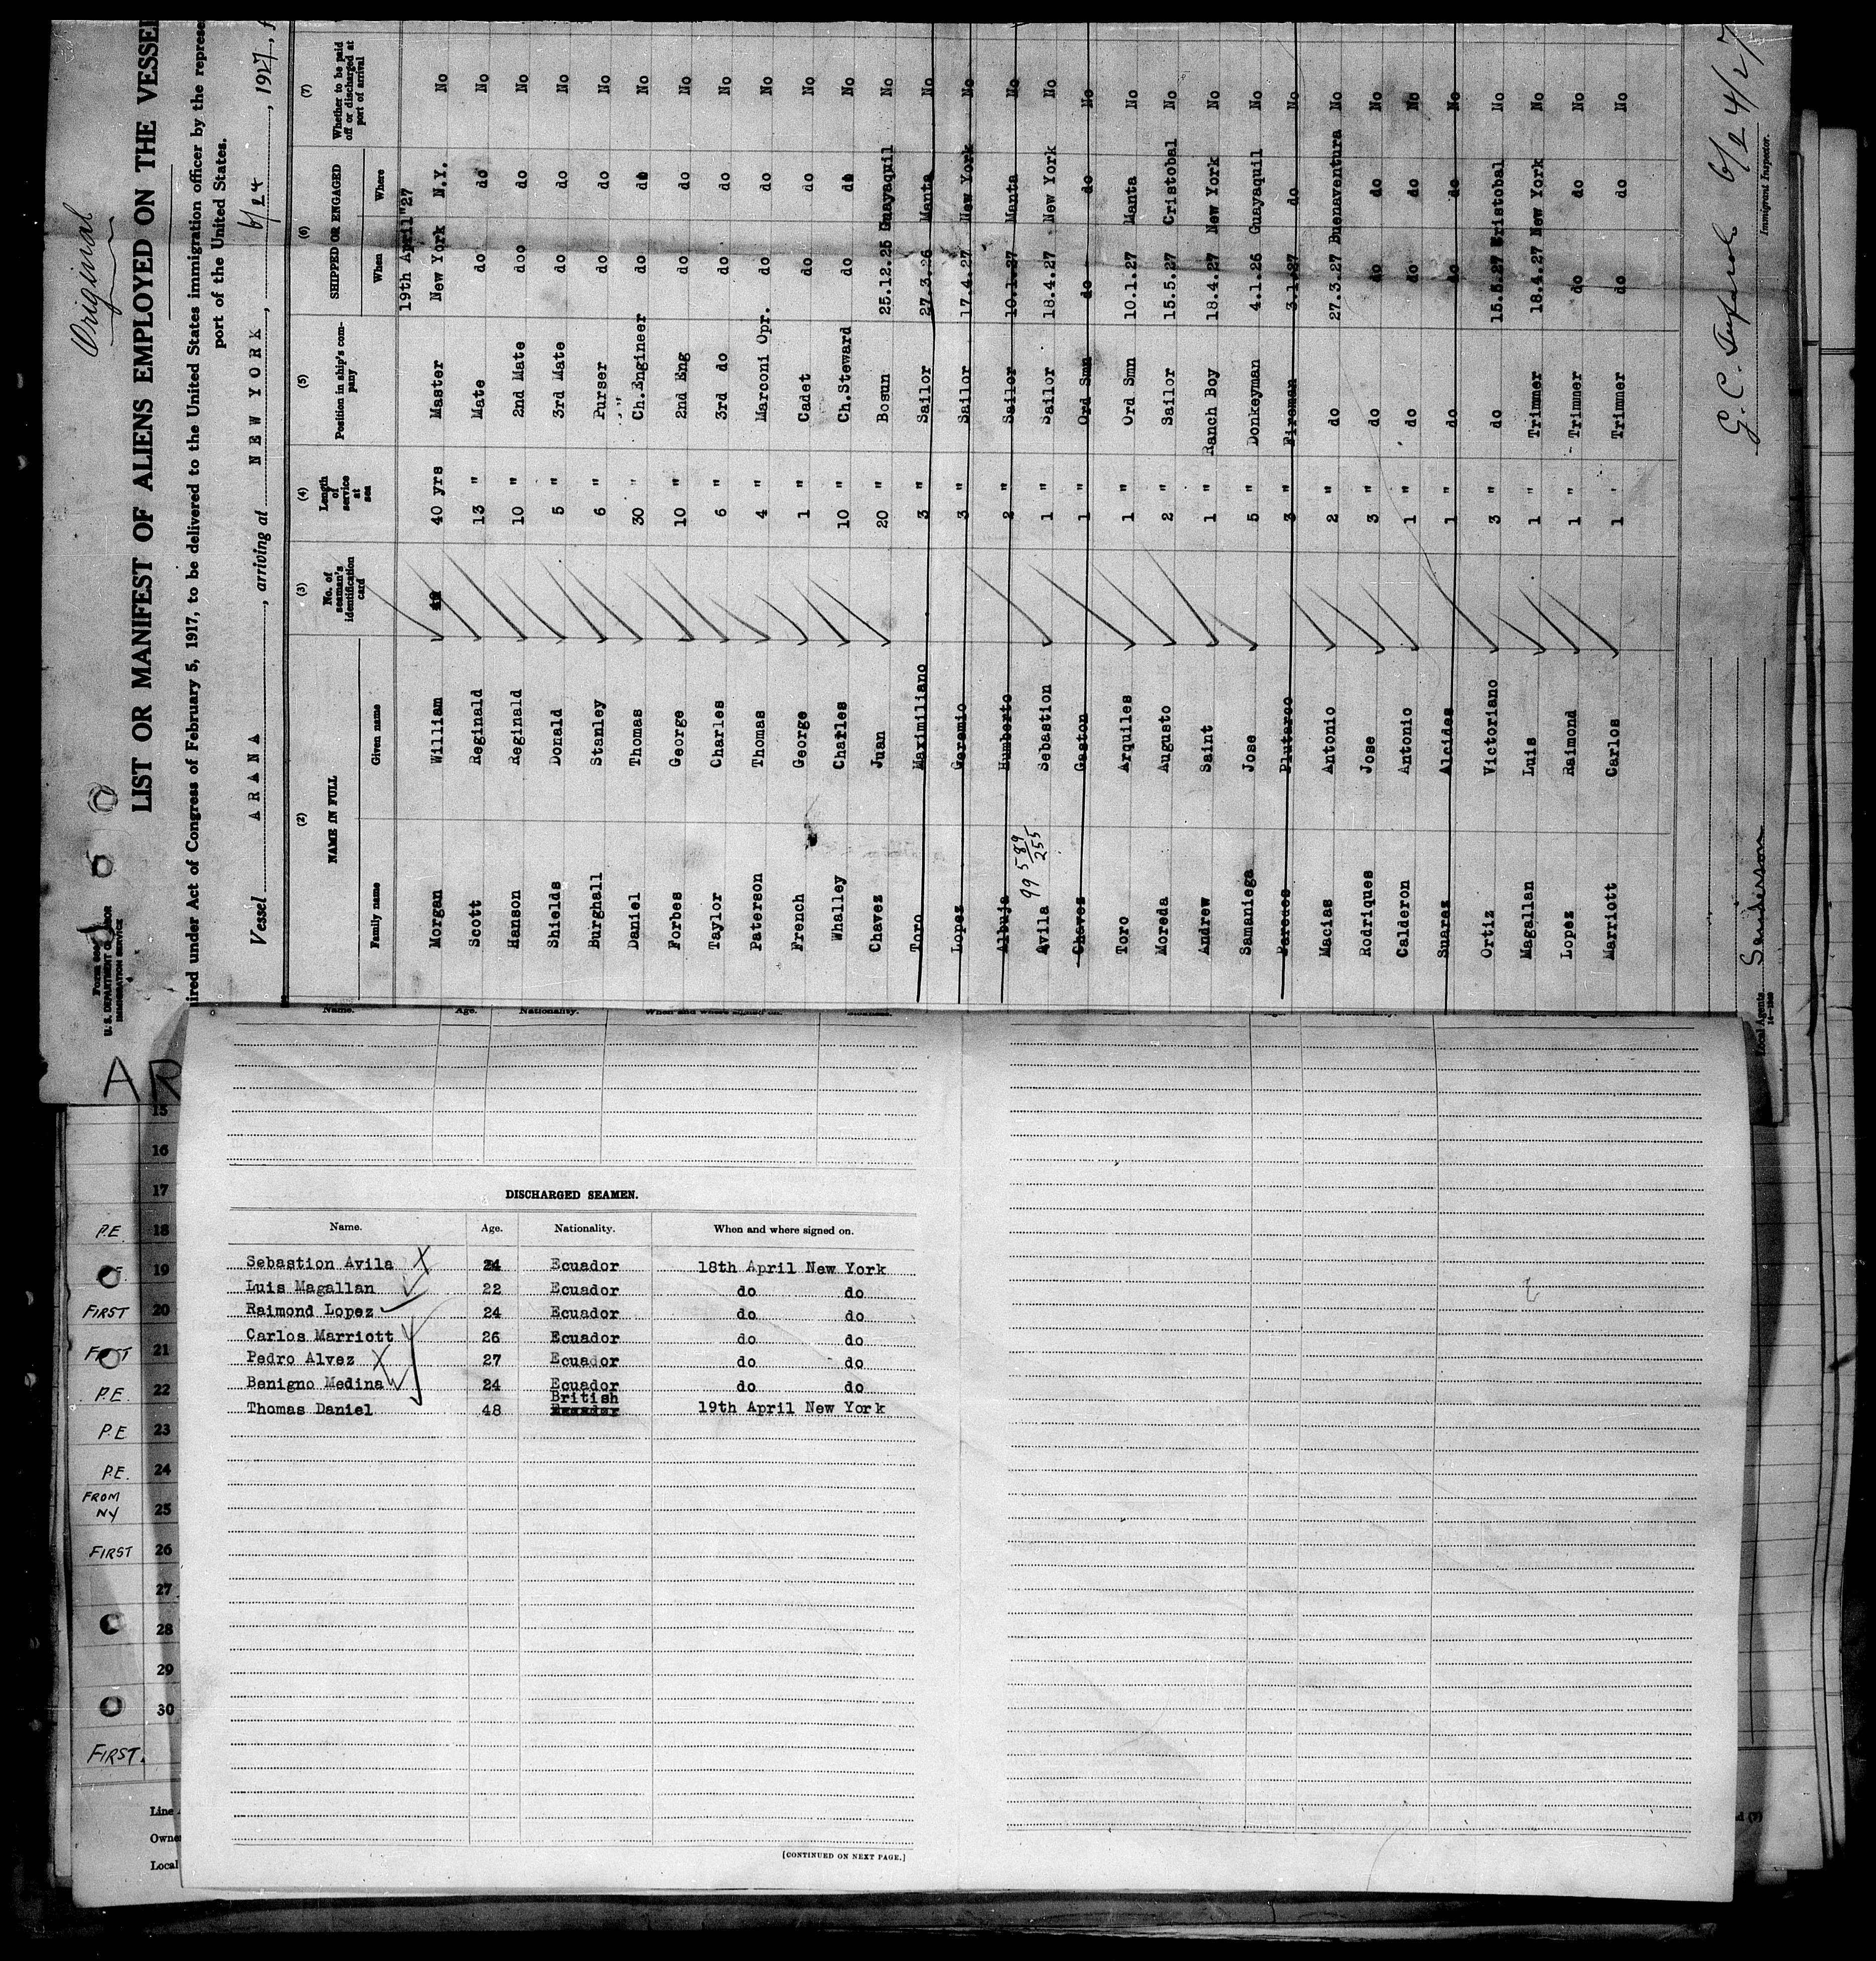 Original
Form 689
U. S. DEPARTMENT OF LABOR
IMMIGRATION SERVICE
LIST OR MANIFEST OF ALIENS EMPLOYED ON THE VESSEL
ired under Act of Congress of February 5, 1917, to be delivered to the United States immigration officer by the represe
port of the United States.
Vessel ARANA, arriving at NEW YORK, 6/24, 1927, f
(2) (3) (4) (5) (6) (7)
NAME IN FULL No. of seaman's identification card Length of service at sea Position in ship's company SHIPPED OR ENGAGED Whether to be paid off or discharged at port of arrival
Family name Given name When Where
19th April"27
Morgan William 40 yrs Master New York N.Y. No
Scott Reginald 13 " Mate do do No
Hanson Reginald 10 " 2nd Mate doo do No
Shields Donald 5 " 3rd Mate do do No
Burghall Stanley 6 " Purser do do No
Daniel Thomas 30 " Ch.Engineer do do No
Forbes George 10 " 2nd Eng do do No
Taylor Charles 6 " 3rd do do do No
Paterson Thomas 4 " Marconi Opr. do do No
French George 1 " Cadet do do No
Whalley Charles 10 " Ch.Steward do do No
Chavez Juan 20 " Bosun 25.12.25 Guayaquil No
Toro Maximiliano 3 " Sailor 27.3.26 Manta No
Lopez Geremio 3 " Sailor 17.4.27 New York No
Albuja Humberto 2 " Sailor 10.1.27 Manta No
Avila 99 589/255 Sebastion 1 " Sailor 18.4.27 New York No
Chavez Gaston 1 " Ord Smn do do No
Toro Arquiles 1 " Ord Smn 10.1.27 Manta No
Moreda Augusto 2 " Sailor 15.5.27 Cristobal No
Andrew Saint 1 " Ranch Boy 18.4.27 New York No
Samaniega Jose 5 " Donkeyman 4.1.26 Guayaquil No
Paredes Plutarco 3 " Fireman 3.1.27 do No
Macias Antonio 2 " do 27.3.27 Buenaventura No
Rodriques Jose 3 " do do do No
Calderon Antonio 1 " do do do No
Suarez Alcides 1 " do do do No
Ortiz Victoriano 3 " do 15.5.27 Cristobal No
Magallan Luis 1 " Trimmer 18.4.27 New York No
Lopez Raimond 1 " Trimmer do do No
Marriott Carlos 1 " Trimmer do do No
Local Agents Senderson
G. C. 6/24/27
Immigrant Inspector.
14—1240
AR
Name. Age. Nationality. When and where signed on.
DISCHARGED SEAMEN.
Name. Age. Nationality. When and where signed on.
Sebastion Avila X 24 Ecuador 18th April New York
Luis Magallan 22 Ecuador do do
Raimond Lopez 24 Ecuador do do
Carlos Marriott 26 Ecuador do do
Pedro Alvez X 27 Ecuador do do
Benigno Medina 24 Ecuador do do
British
Thomas Daniel 48 Ecuador 19th April New York
[CONTINUED ON NEXT PAGE.]
15
16
17
P.E. 18
19
FIRST 20
FIRST 21
P.E. 22
P.E 23
P.E. 24
FROM
NY 25
FIRST 26
27
28
29
30
FIRST.
Line
Owne
Local
d (7)